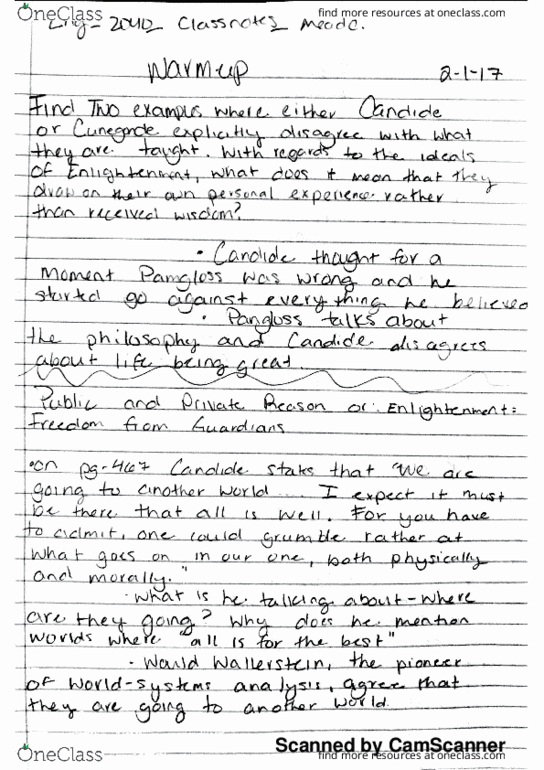 OneClass
find more resources at oneclass.com
Eng-2040 Classnotes Meade.
find more resources at oneclass.com
Warmup
2-1-17
Find Two examples where either Candide
or Cunegonde explicitly disagree with what
they are taught. With regards to the ideals
of Enlightenment, what does it mean that they
draw on their own personal experience rather
than received wisdom?
• Candide thought for a
moment Pamgloss was wrong and he
started go against everything he believed
• Pangloss talks about
the philosophy and Candide disagrees
about life being great.
Public and Private Reason or Enlightenment:
Freedom from Guardians
•on pg-467 Candide stats that "we are
going to another world.... I expect it must
be there that all is well. For you have
to admit, one could grumble rather at
what goes on in our one, both physically
and morally."
• what is he talking about - where
are they going? Why does he mention
worlds where "all is for the best"
• Would Wallerstein, the pioneer
of world-systems analysis, agree that
they are going to another world.
Scanned by CamScanner
OneClass
find more resources at oneclass.com